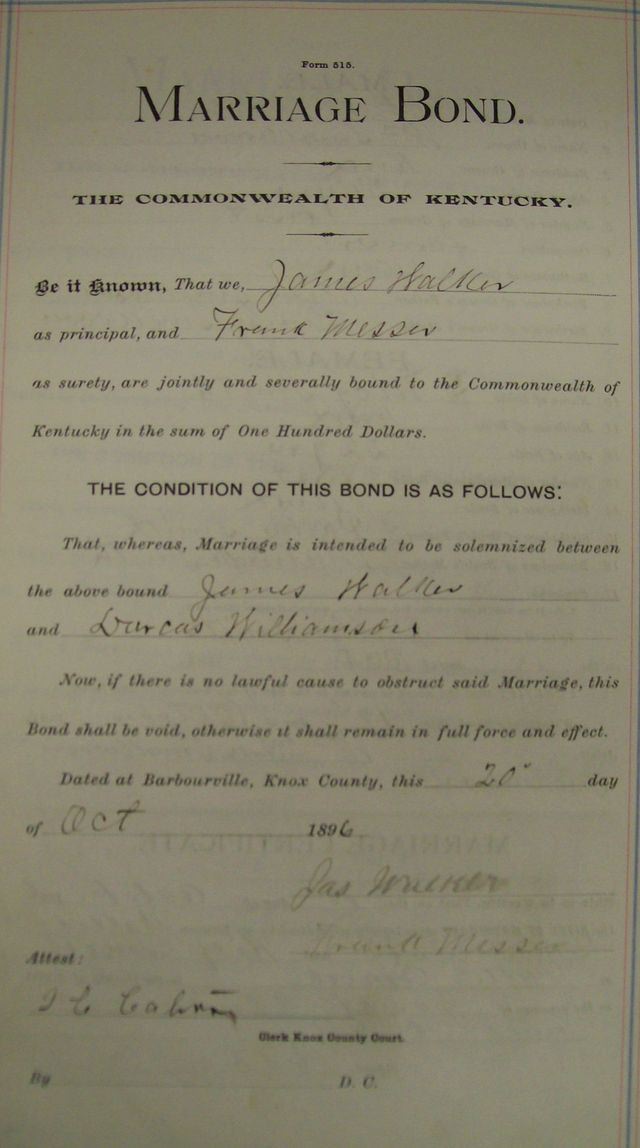 Form 515.
MARRIAGE BOND.
THE COMMONWEALTH OF KENTUCKY.
Be it Known, That we, James Walker
as principal, and Frank Messer
as surety, are jointly and severally bound to the Commonwealth of
Kentucky in the sum of One Hundred Dollars.
THE CONDITION OF THIS BOND IS AS FOLLOWS:
That, whereas, Marriage is intended to be solemnized between
the above bound James Walker
and Durcas Williamson
Now, if there is no lawful cause to obstruct said Marriage, this
Bond shall be void, otherwise it shall remain in full force and effect.
Dated at Barbourville, Knox County, this 20" day
of Oct 1896
Jas Walker
Frank Messer
Attest:
Clerk Knox County Court.
By D. C.